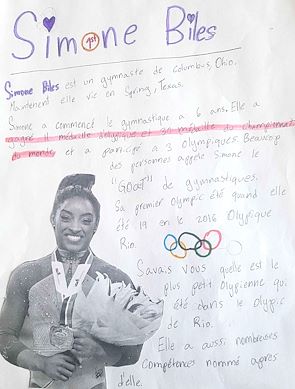 Simone Biles
Simone Biles est un gymnaste de columbus, Ohio.
Maintenent elle vie en Spring, Texas.
Simone a commencé le gymnastique a 6 ans. Elle a
gagné 11 médaille d'olypique et 30 médaille du championnat
du monde et a participé a 3 Olympiques. Beaucoup
des personnes appelle Simone le
"Goat" de gymnastiques.
Sa premier Olympic été quand elle
été 19 en le 2016 Olypique
Rio.
Savais vous quelle est le
plus petit Olypienne qui
été dans le Olypic
de Rio.
Elle a aussi nombreuses
Compétences nommé apres
d'elle.